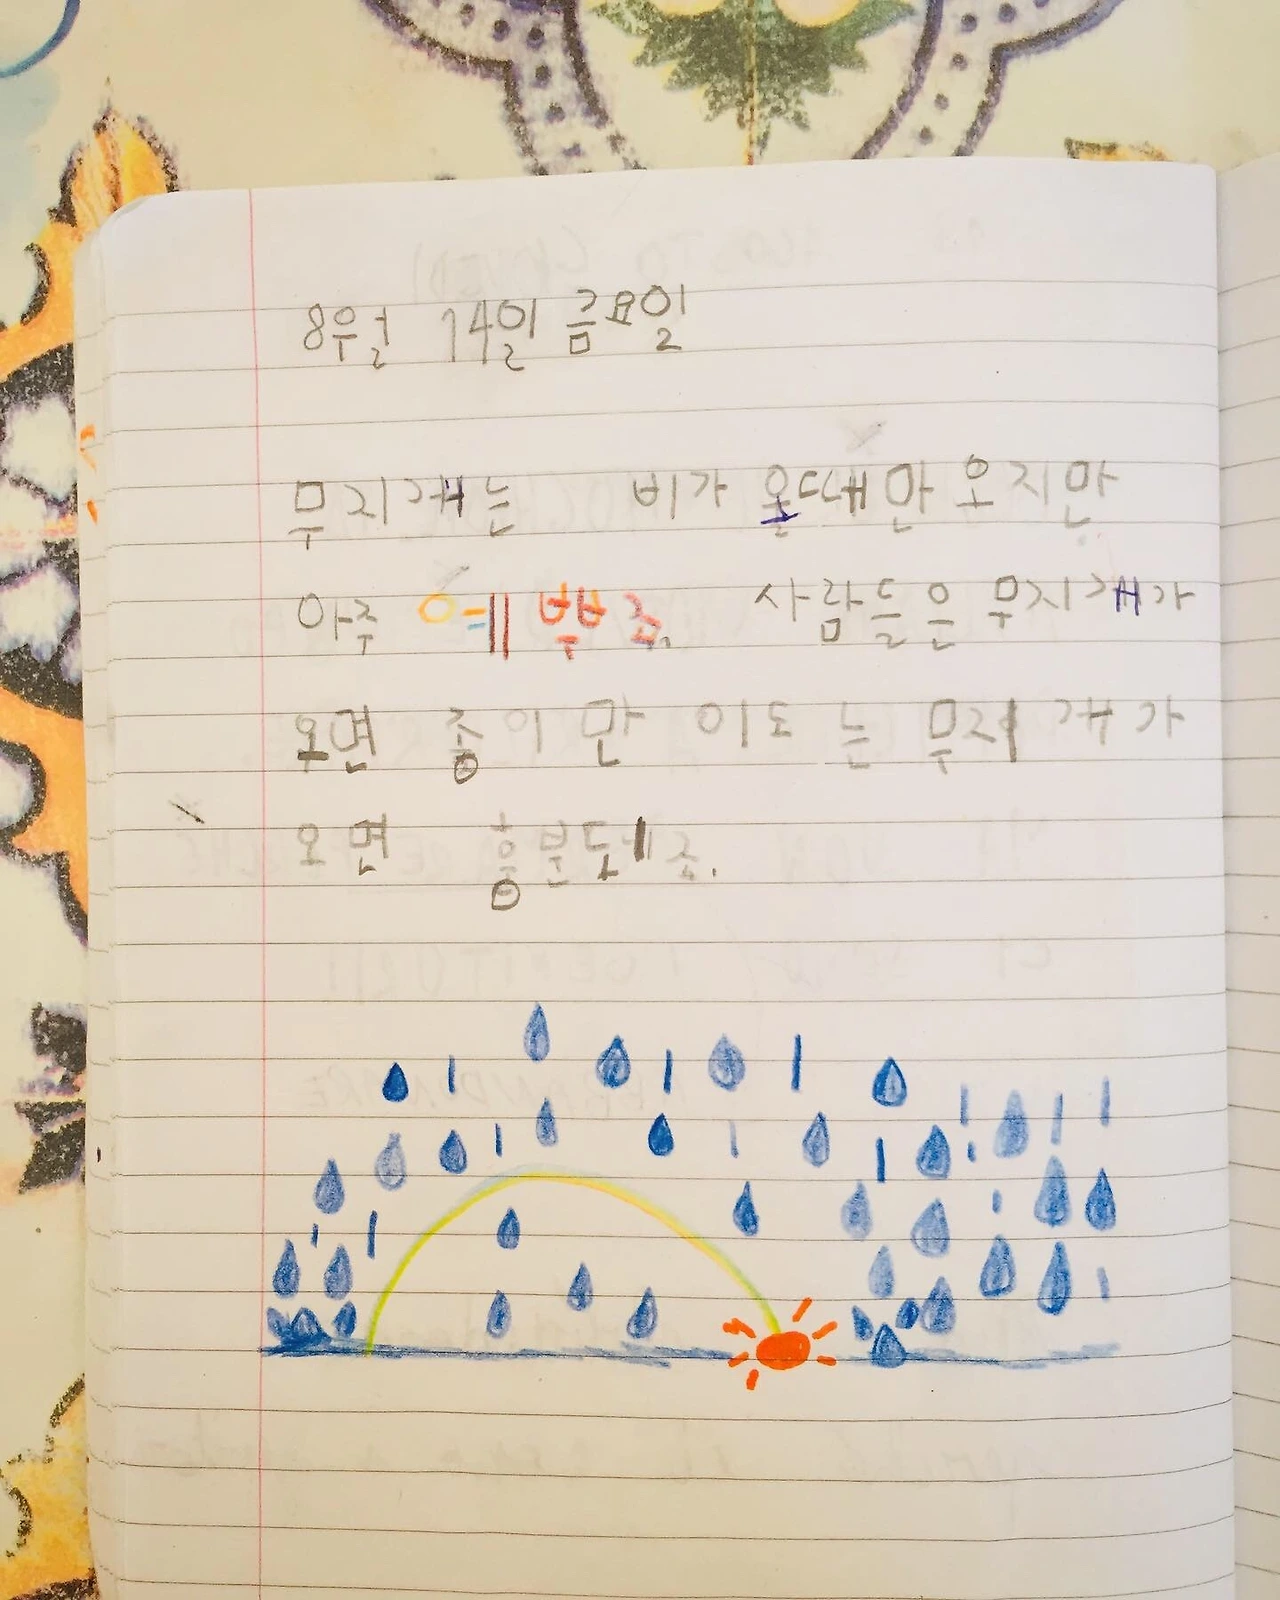 8월 14일 금요일
무지개는 비가 올때만 오지만
아주 예쁘죠. 사람들은 무지개가
오면 종이만 이도는 무지개가
오면 흥분돼죠.